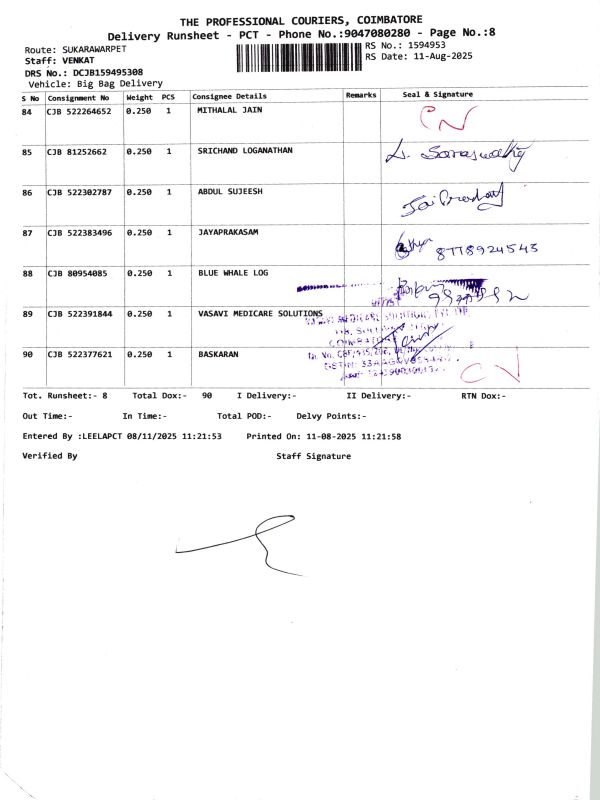 THE PROFESSIONAL COURIERS, COIMBATORE
Delivery Runsheet - PCT - Phone No.:9047080280 - Page No.:8
Route: SUKARAWARPET
RS No.: 1594953
Staff: VENKAT
RS Date: 11-Aug-2025
DRS No.: DCJB159495308
Vehicle: Big Bag Delivery
S No Consignment No Weight PCS Consignee Details Remarks Seal & Signature
84 CJB 522264652 0.250 1 MITHALAL JAIN CN
85 CJB 81252662 0.250 1 SRICHAND LOGANATHAN
86 CJB 522302787 0.250 1 ABDUL SUJEESH
87 CJB 522383496 0.250 1 JAYAPRAKASAM 8778924543
88 CJB 80954085 0.250 1 BLUE WHALE LOG
89 CJB 522391844 0.250 1 VASAVI MEDICARE SOLUTIONS
90 CJB 522377621 0.250 1 BASKARAN CN
Tot. Runsheet:- 8 Total Dox:- 90 I Delivery:- II Delivery:- RTN Dox:-
Out Time:- In Time:- Total POD:- Delvy Points:-
Entered By :LEELAPCT 08/11/2025 11:21:53 Printed On: 11-08-2025 11:21:58
Verified By Staff Signature